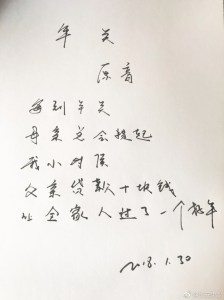 年关
原音
每到年关
母亲总会提起
我小时候
父亲贷款十块钱
让全家人过了一个好年
2018.1.30